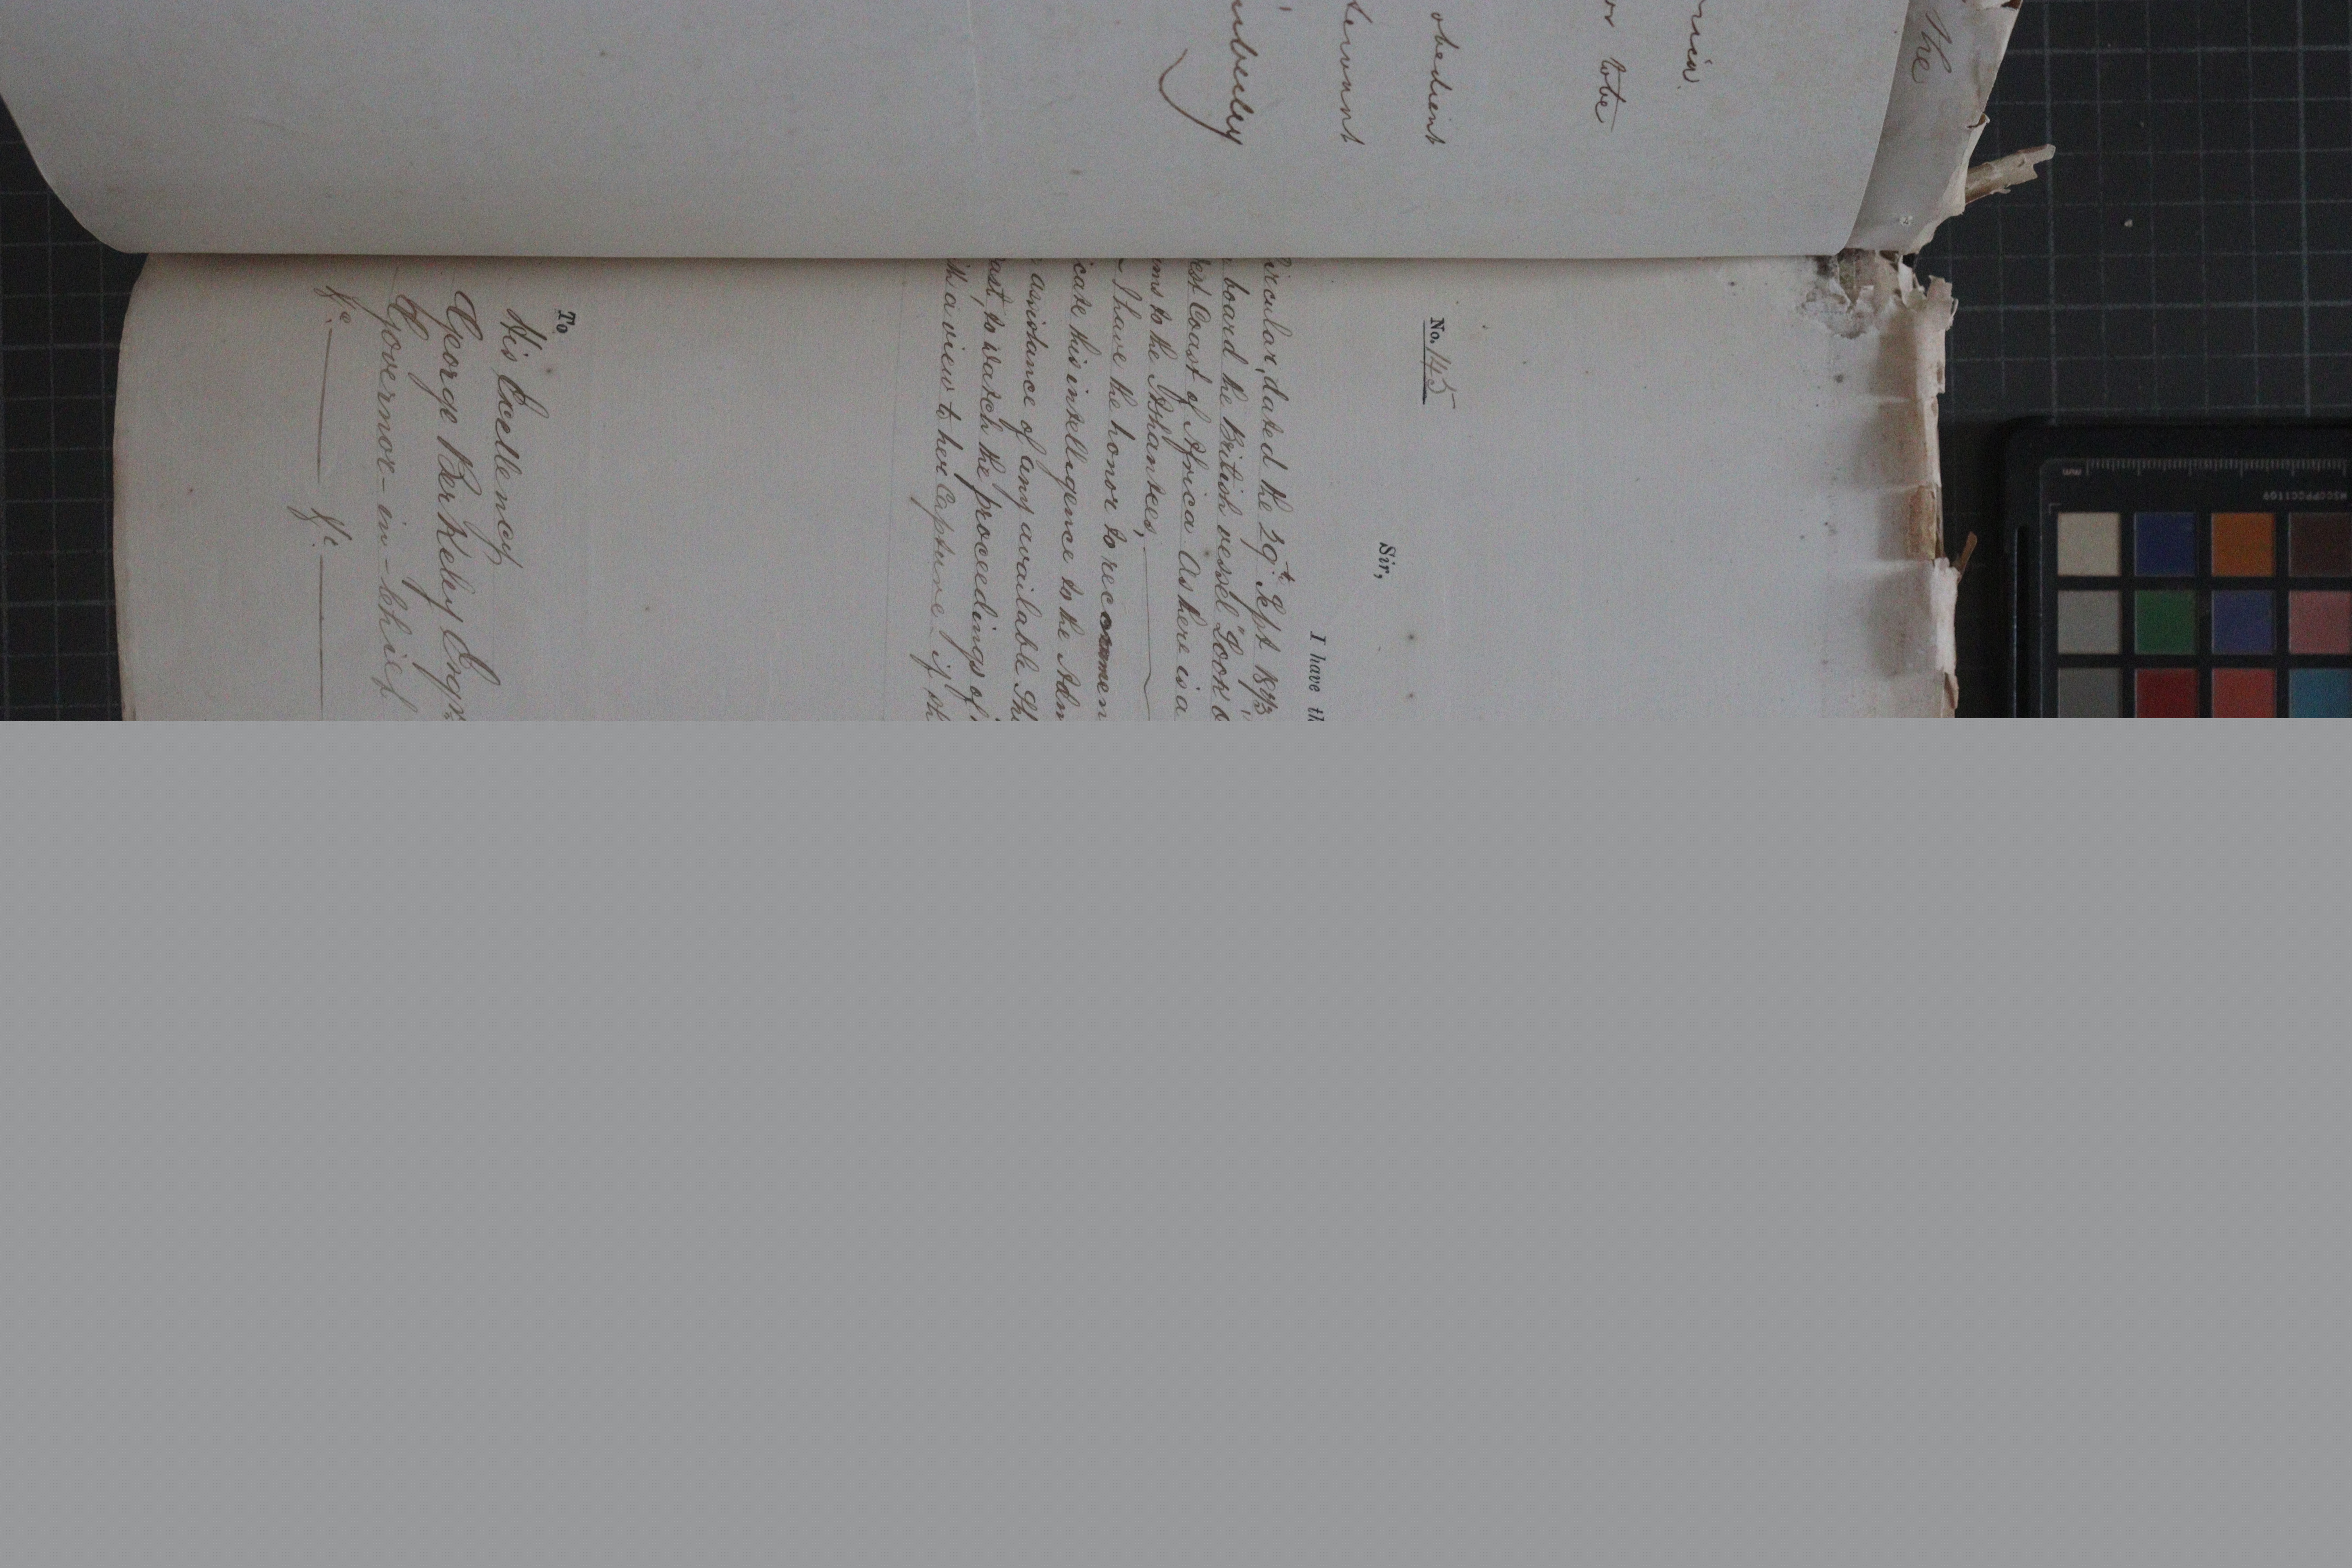 The
ria.
or to be
obedient
servant
mberley
No. 145
Sir,
I have th
ircular, dated the 29t. Sept 1873
board the British vessel "Look o
est Coast of Africa. As there is a
ms to the Ashantees,
I have the honor to recommen
icate this intelligence to the Adm
assistance of any available Shi
ast, to watch the proceedings of
ith a view to her Capture - if th
To
His Excellency
George Berkeley Esqr.
Governor-in-Chief
&c. &c.